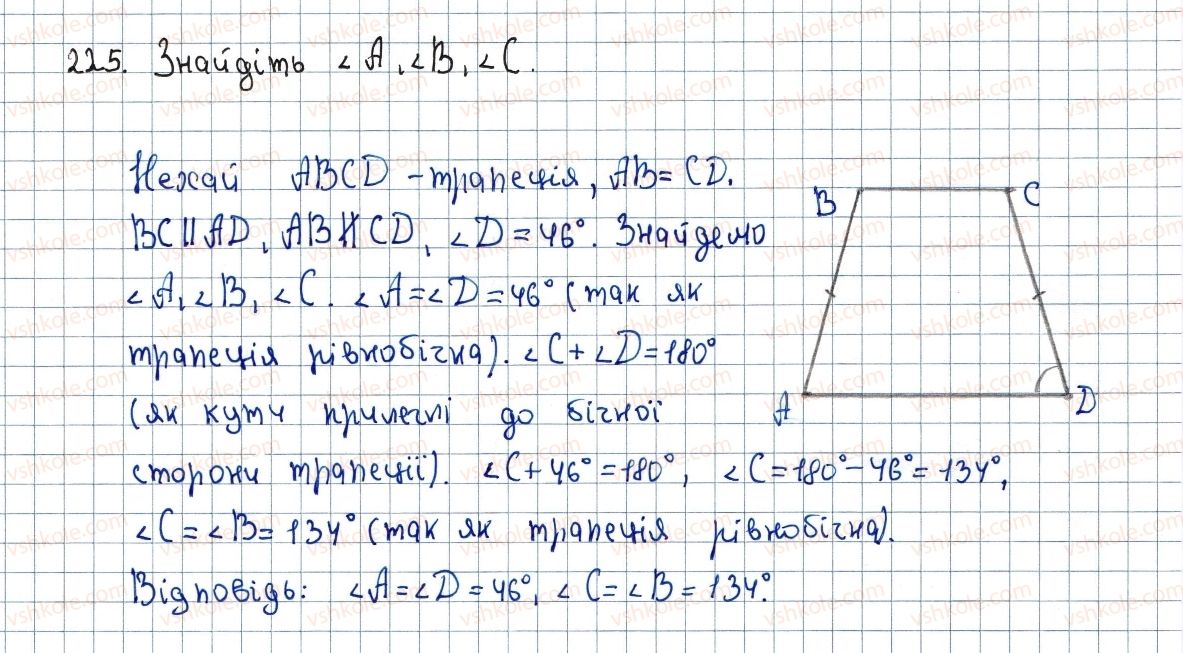 225. Знайдіть ∠A, ∠B, ∠C.
Нехай ABCD - трапеція, AB = CD.
BC ∥ AD, AB ∦ CD, ∠D = 46°. Знайдемо
∠A, ∠B, ∠C. ∠A = ∠D = 46° (так як
трапеція рівнобічна). ∠C + ∠D = 180°
(як кути прилеглі до бічної
сторони трапеції). ∠C + 46° = 180°, ∠C = 180° - 46° = 134°,
∠C = ∠B = 134° (так як трапеція рівнобічна).
Відповідь: ∠A = ∠D = 46°, ∠C = ∠B = 134°.
B
C
A
D
vshkole.com